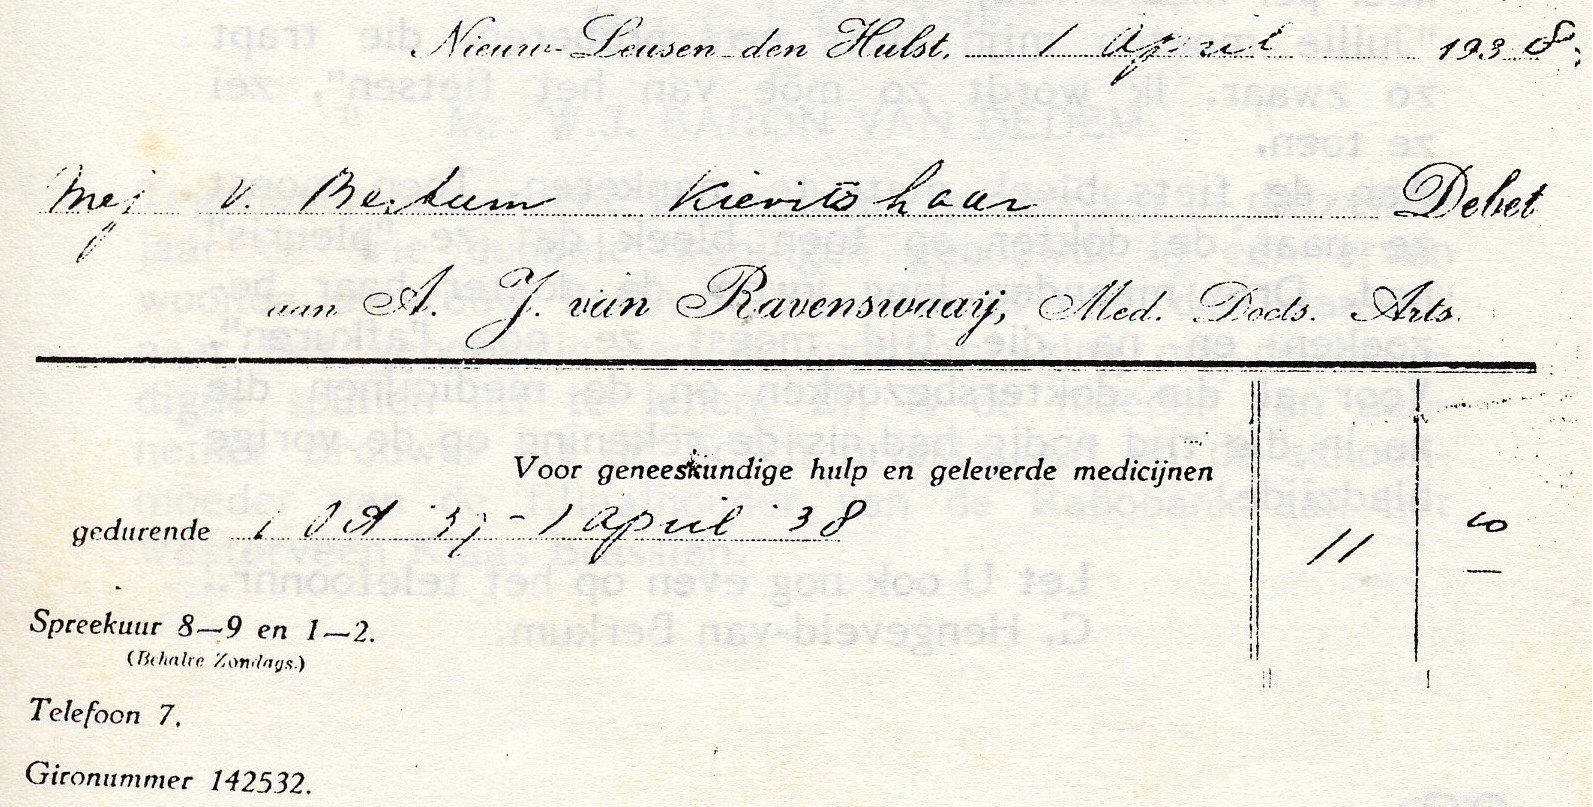 Nieuw-Leusen den Hulst, 1 April 1938.
Mej v. Berkum Kievitshaar Debet
aan A. J. van Ravenswaaij, Med. Docts. Arts.
Voor geneeskundige hulp en geleverde medicijnen
gedurende 1 Oct '37 - 1 April '38 11
Spreekuur 8—9 en 1—2.
(Behalve Zondags.)
Telefoon 7.
Gironummer 142532.